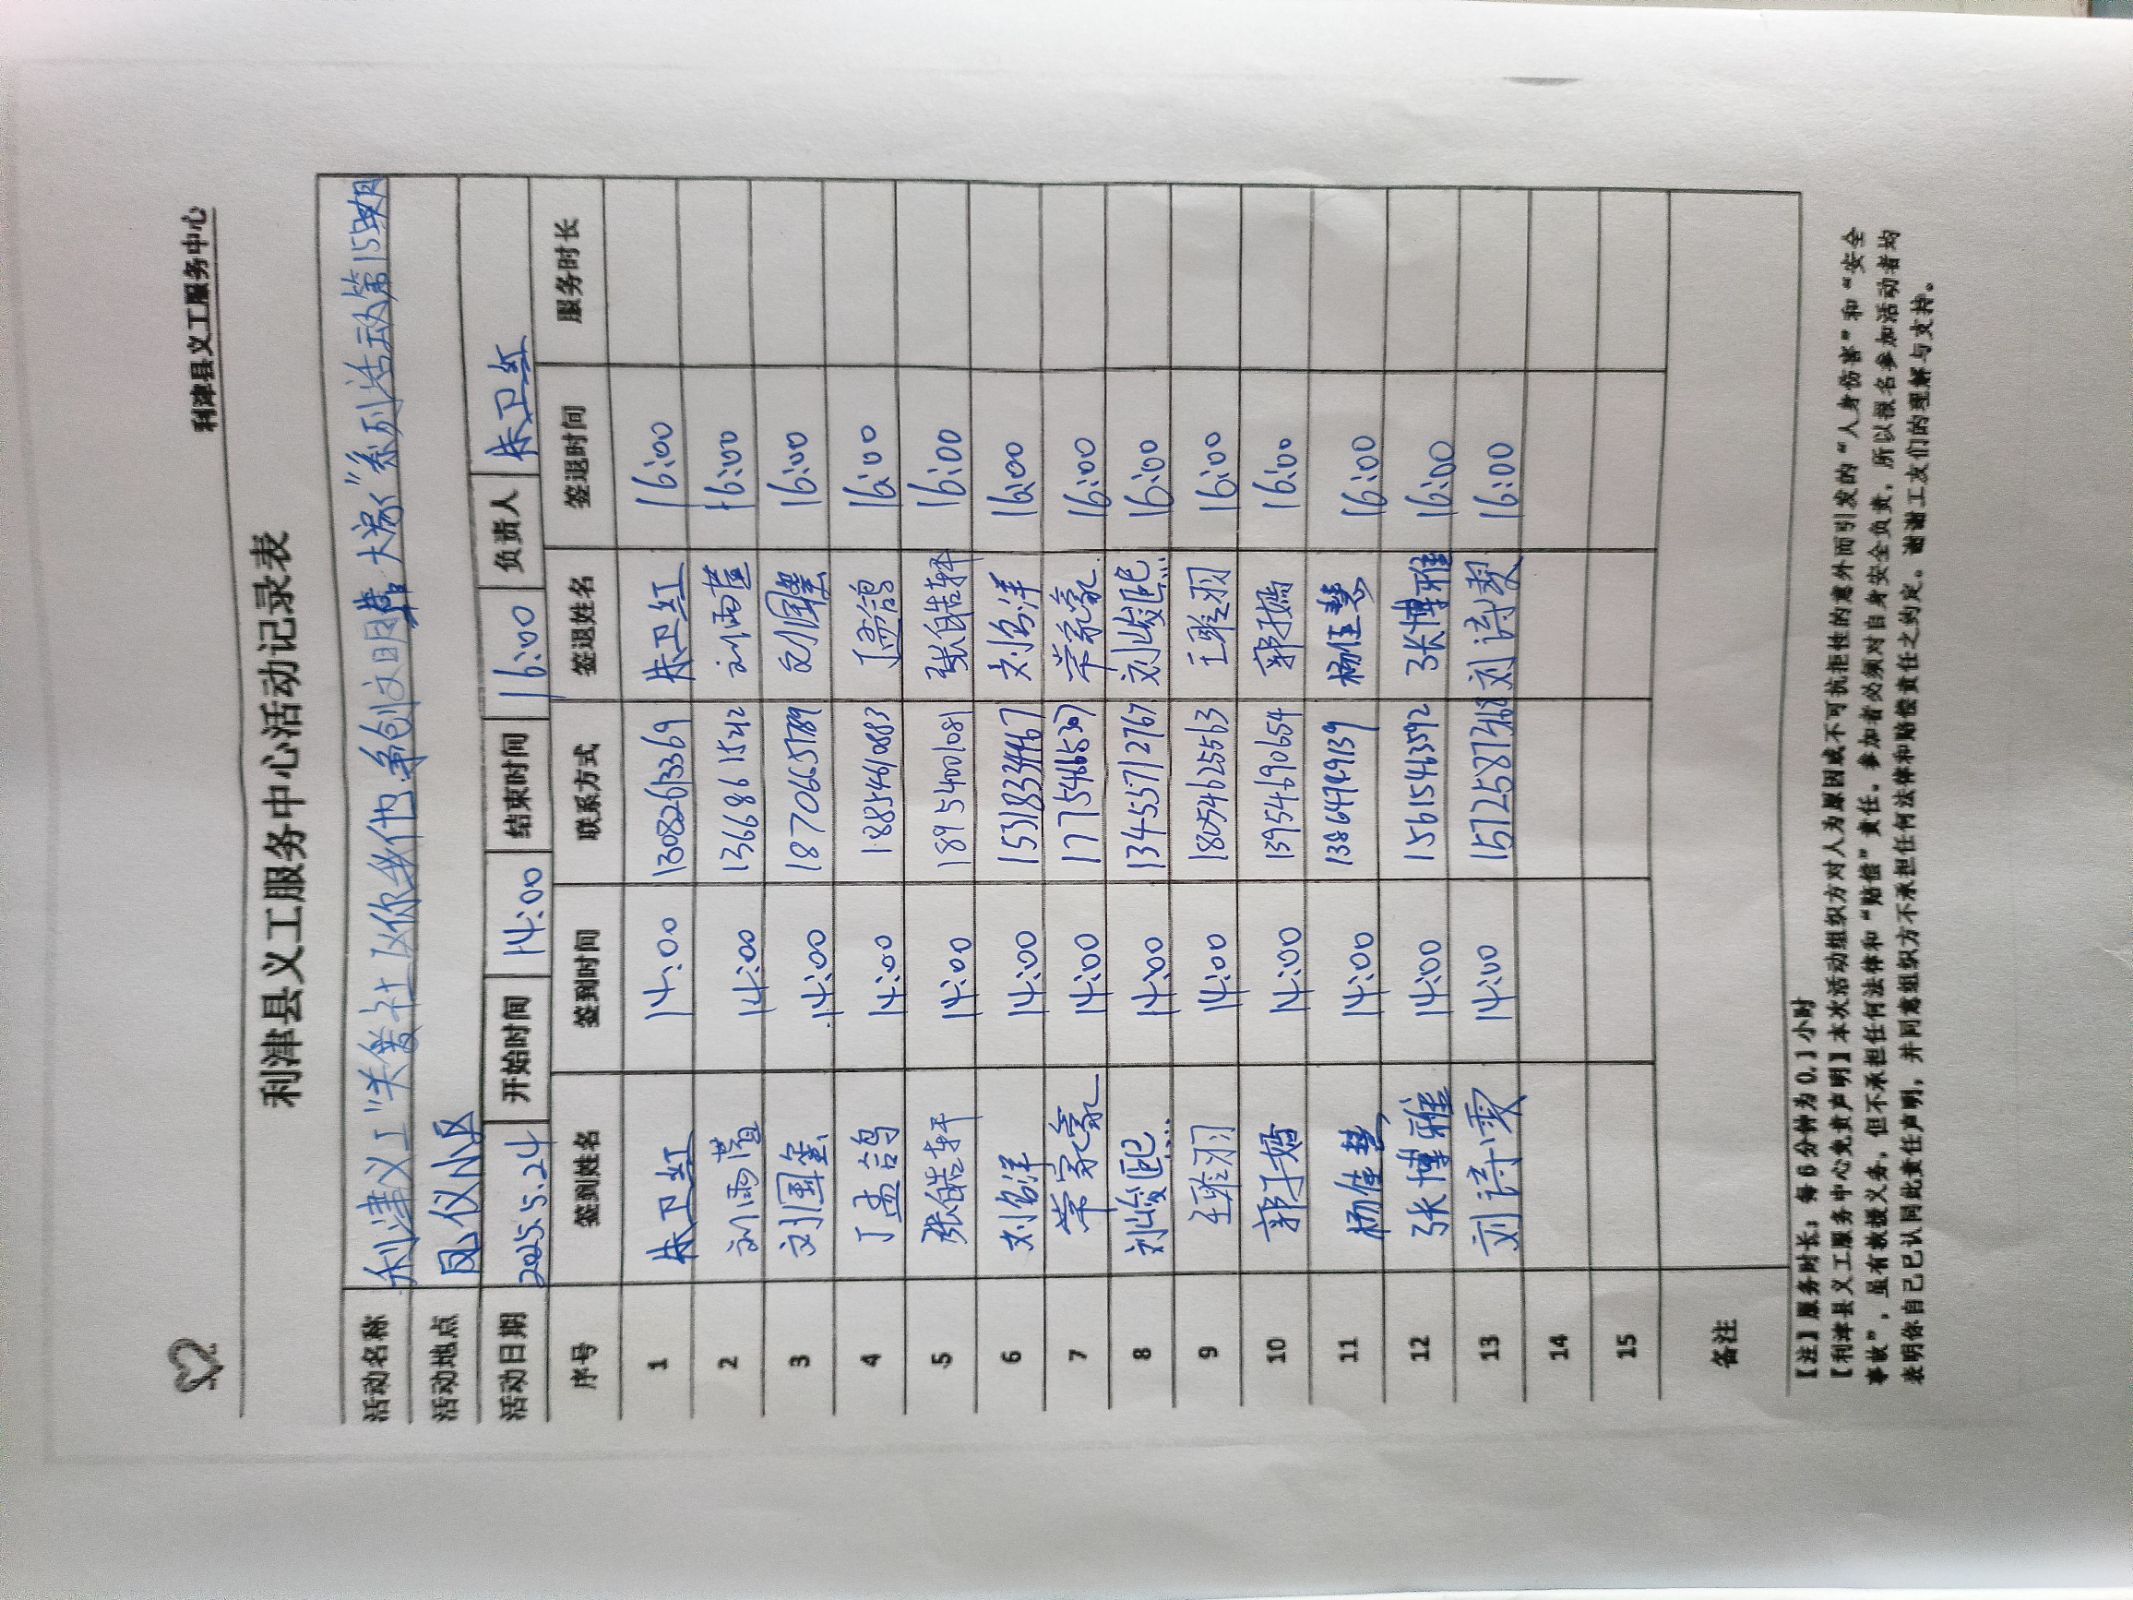 利津县义工服务中心
利津县义工服务中心活动记录表
活动名称 利津义工"关爱社区你我他,争创文明 大家"系列活动第15期
活动地点 凤仪小区
活动日期 2025.5.24 开始时间 14:00 结束时间 16:00 负责人 朱卫红
序号 签到姓名 签到时间 联系方式 签退姓名 签退时间 服务时长
1 朱卫红 14:00 13082613369 朱卫红 16:00
2 刘雨萱 14:00 13668615212 刘雨萱 16:00
3 刘国玺 14:00 18706651789 刘国玺 16:00
4 丁孟鸽 14:00 18854610883 丁孟鸽 16:00
5 张皓轩 14:00 18954001081 张皓轩 16:00
6 刘名洋 14:00 15318334467 刘名洋 16:00
7 常家豪 14:00 17754665307 常家豪 16:00
8 刘峻熙 14:00 13455712767 刘峻熙 16:00
9 王聖羽 14:00 18054625563 王聖羽 16:00
10 郭子嫣 14:00 13954690654 郭子嫣 16:00
11 杨佳慧 14:00 13864749139 杨佳慧 16:00
12 张博雅 14:00 15615463592 张博雅 16:00
13 刘诗雯 14:00 刘诗雯 16:00
14
15
备注
【注】服务时长:每6分钟为0.1小时
【利津县义工服务中心免责声明】本次活动组织方对人为原因或不可抗拒性的意外而引发的"人身伤害"和"安全
事故",虽有救援义务,但不承担任何法律和"赔偿"责任。参加者必须对自身安全负责,所以报名参加活动者均
表明你自己已认同此责任声明,并同意组织方不承担任何法律和赔偿责任之约定。谢谢工友们的理解与支持。